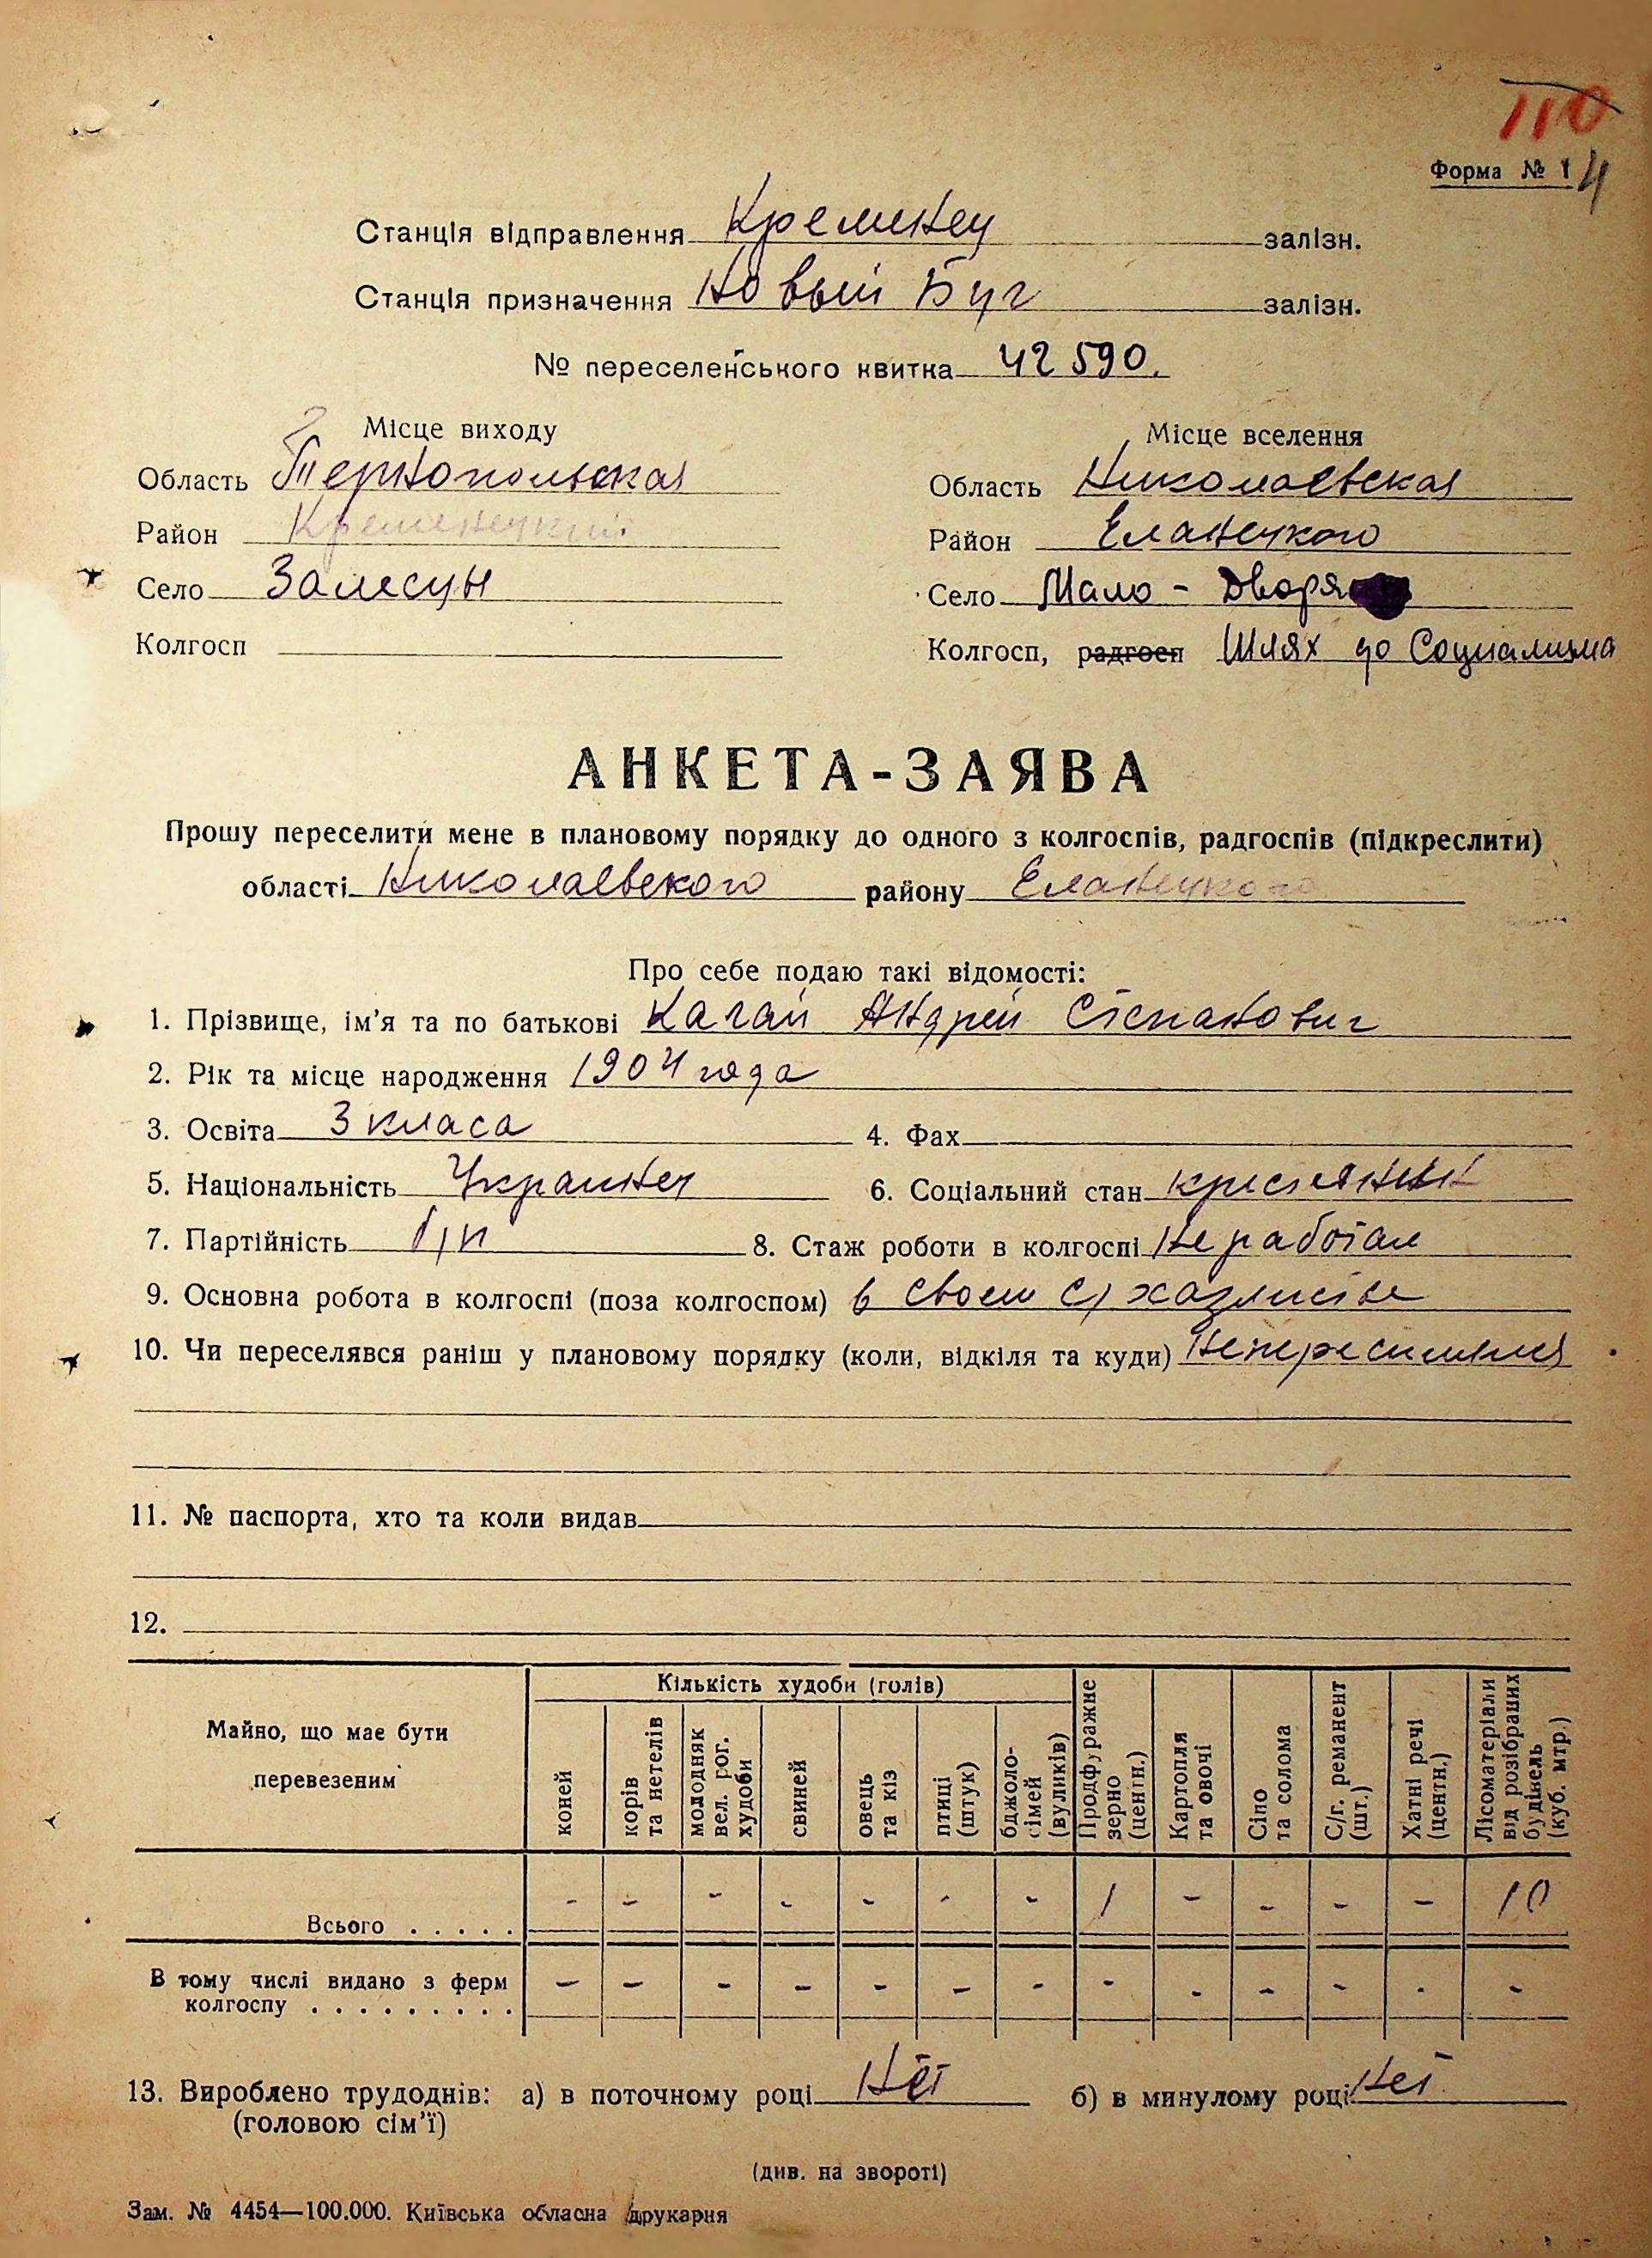 110
Форма № 1 4
Станція відправлення Кременец залізн.
Станція призначення Новый Буг залізн.
№ переселенського квитка 42590.
Місце виходу
Область Тернопольская
Район Кременецкий
Село Залесцы
Колгосп
Місце вселення
Область Николаевская
Район Еланецкого
Село Мало - Дворя
Колгосп, радгосп Шлях до Социализма
АНКЕТА-ЗАЯВА
Прошу переселити мене в плановому порядку до одного з колгоспів, радгоспів (підкреслити)
області Николаевского району Еланецкого
Про себе подаю такі відомості:
1. Прізвище, ім'я та по батькові Кагай Андрей Степанович
2. Рік та місце народження 1904 года
3. Освіта 3 класа 4. Фах
5. Національність Украинец 6. Соціальний стан крестянин
7. Партійність б/п 8. Стаж роботи в колгоспі Не работал
9. Основна робота в колгоспі (поза колгоспом) в своем с/хазяистве
10. Чи переселявся раніш у плановому порядку (коли, відкіля та куди) Непереселялся
11. № паспорта, хто та коли видав
12.
Майно, що має бути перевезеним
Кількість худоби (голів)
коней
корів та нетелів
молодняк вел. рог. худоби
свиней
овець та кіз
птиці (штук)
бджоло-сімей (вуликів)
Продфуражне зерно (центн.)
Картопля та овочі
Сіно та солома
С/г. реманент (шт.)
Хатні речі (центн.)
Лісоматеріали від розібраних будівель (куб. мтр.)
Всього . . . . . - - - - - - - 1 - - - - 10
В тому числі видано з ферм
колгоспу . . . . . . . . . - - - - - - - - - - - - -
13. Вироблено трудоднів: а) в поточному році Нет б) в минулому році Нет
(головою сім'ї)
(див. на звороті)
Зам. № 4454—100.000. Київська обласна друкарня